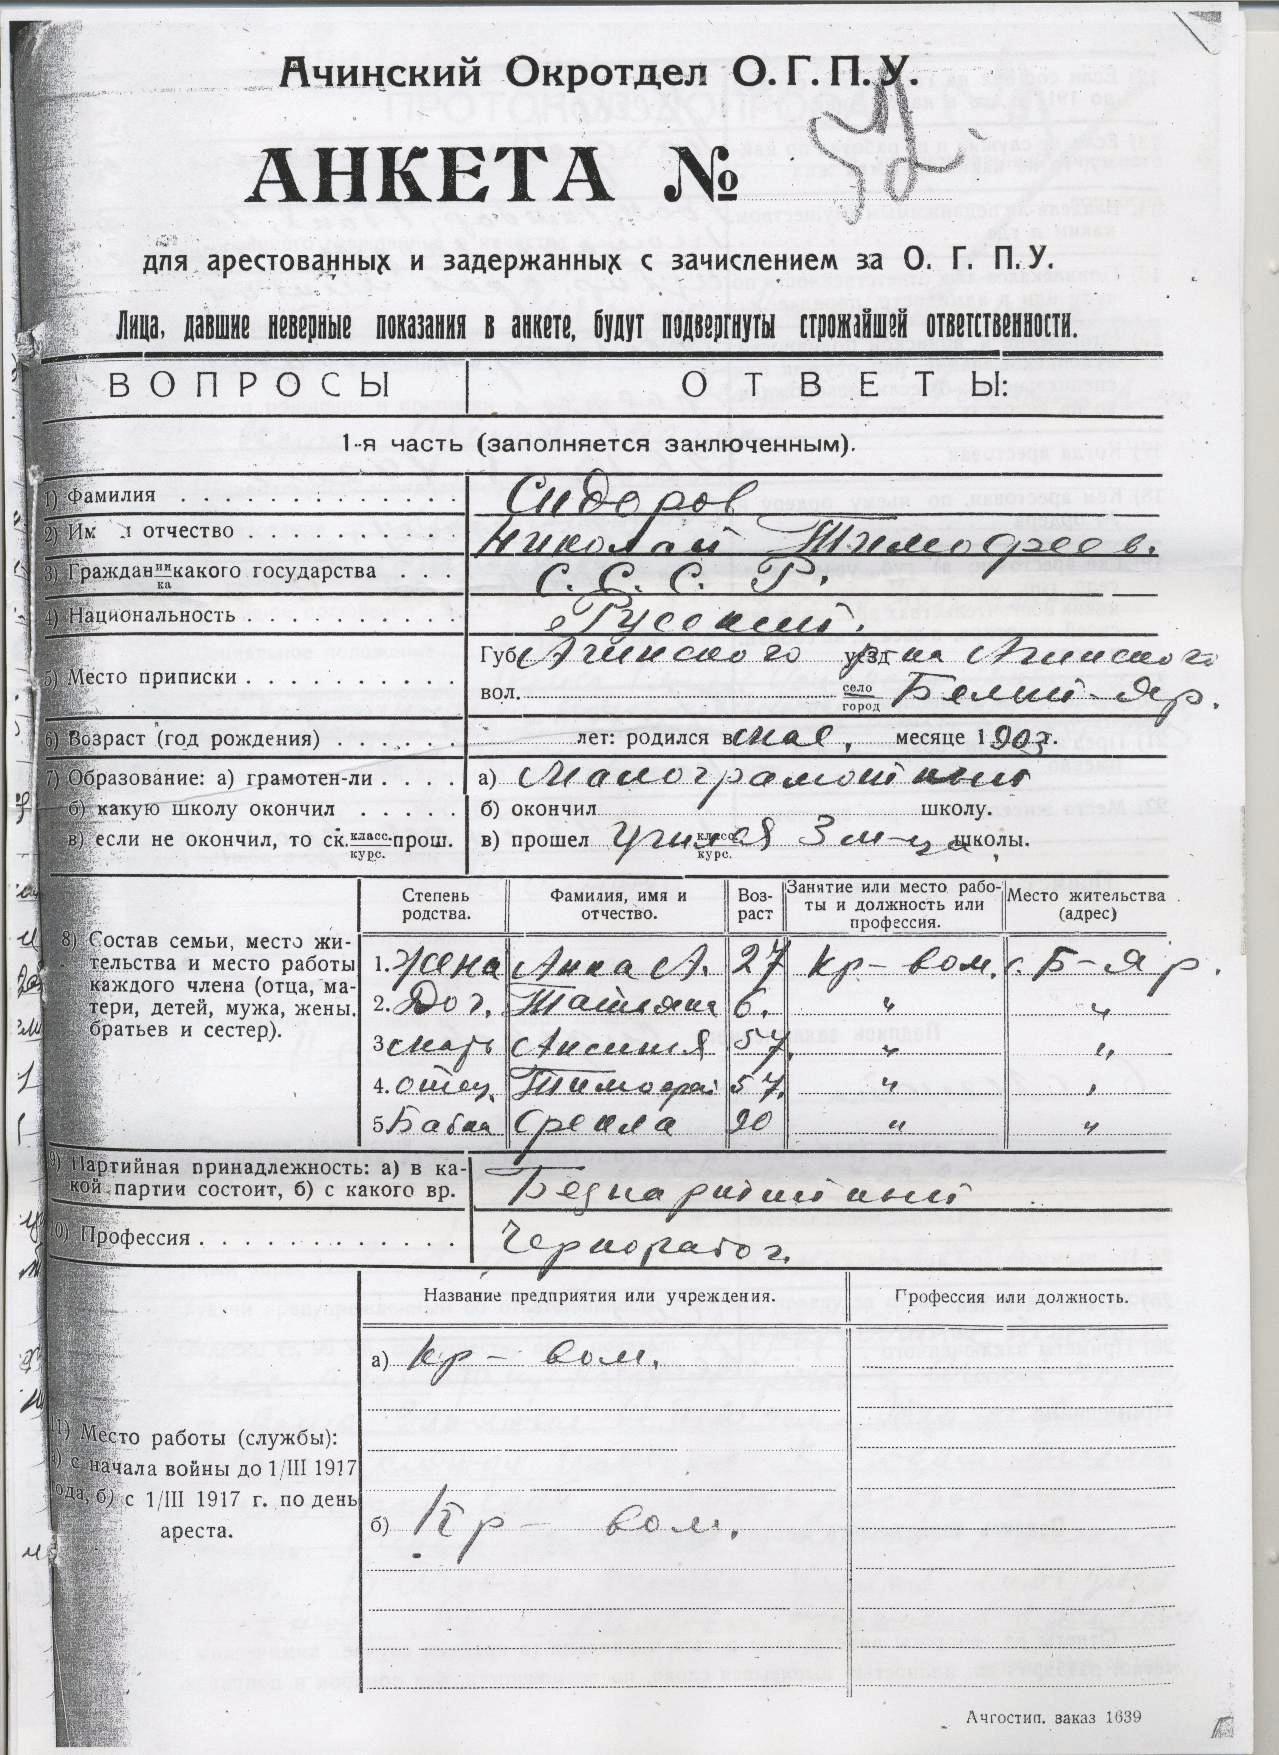 Ачинский Окротдел О.Г.П.У.
АНКЕТА №
для арестованных и задержанных с зачислением за О. Г. П. У.
Лица, давшие неверные показания в анкете, будут подвергнуты строжайшей ответственности.
ВОПРОСЫ ОТВЕТЫ:
1-я часть (заполняется заключенным).
1) Фамилия Сидоров
2) Им я отчество Николай Тимофеев.
3) Граждан нин ка какого государства С. С. С. Р.
4) Национальность Русский.
5) Место приписки Губ. Ачинского уезд Ачинского
вол. село город Белый-Яр.
6) Возраст (год рождения) лет: родился в мае, месяце 1903 г.
7) Образование: а) грамотен-ли а) Малограмотный
б) какую школу окончил б) окончил школу.
в) если не окончил, то ск. класс. курс. прош. в) прошел Учился класс. курс. 3 м-ца школы.
8) Состав семьи, место жительства и место работы каждого члена (отца, матери, детей, мужа, жены, братьев и сестер).
Степень родства. Фамилия, имя и отчество. Возраст Занятие или место работы и должность или профессия. Место жительства (адрес)
1. Жена Анна А. 27 кр-вом. с. Б-Яр.
2. Доч. Татьяна 6. " "
3 мать Аксиния 57. " "
4. отец Тимофей 57. " "
5 Бабка Фекла 90 " "
9) Партийная принадлежность: а) в какой партии состоит, б) с какого вр. Безпартийный
10) Профессия Чернорабоч.
Название предприятия или учреждения. Профессия или должность.
11) Место работы (службы):
а) с начала войны до 1/III 1917
года, б) с 1/III 1917 г. по день
ареста.
а) Кр-вом.
б) Кр-вом.
Ачгостип. заказ 1639